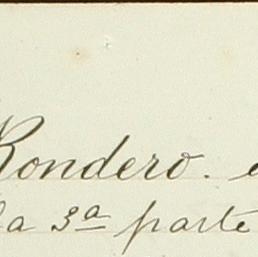 Rondero.
la 3ª parte